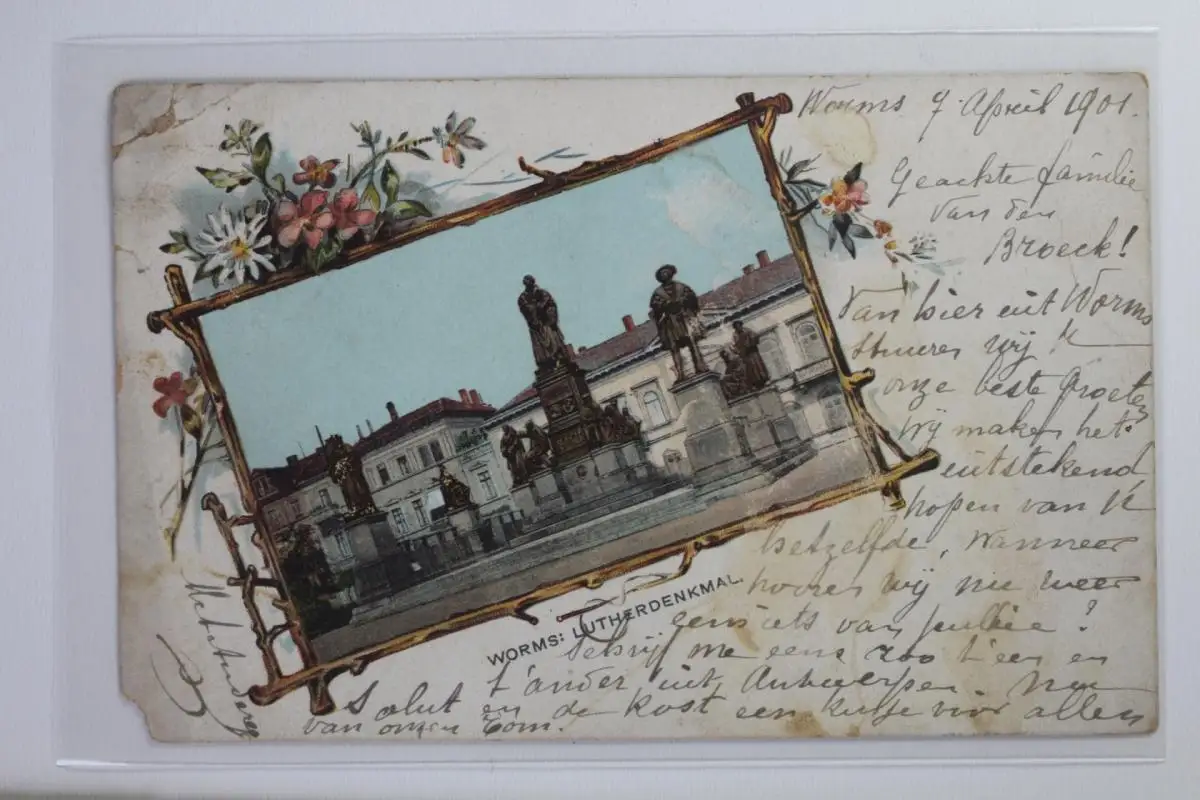 Worms 7 April 1901.
Geachte familie
van den
Broeck!
Van hier uit Worms
stuuren wij U
onze beste Groeten
Wij maken het
uitstekend
hopen van U
hetzelfde, wanneer
hooren wij nu weer
eens iets van jullie?
Schrijf me eens zoo 't een en
t'ander uit Antwerpen. Nu
Salut en de kost een kusje voor allen
van onzen Tom.
WORMS: LUTHERDENKMAL.